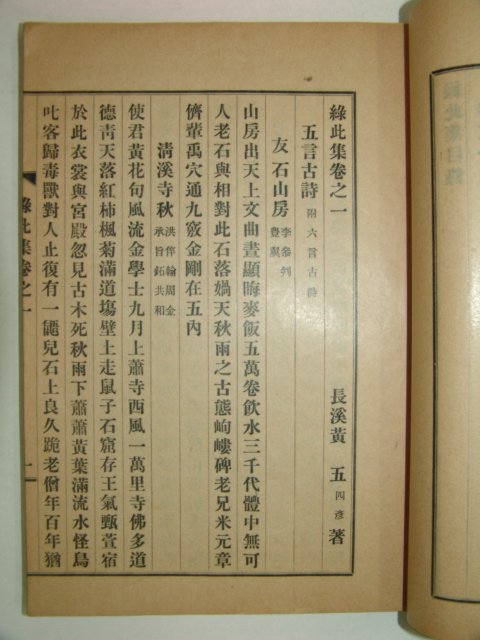 綠此集卷之一
長溪黃 五 四彦 著
五言古詩 附六言古詩
友石山房 李參判豊翼
山房出天上文曲晝顯晦麥飯五萬卷飲水三千代體中無可
人老石與相對此石落媧天秋雨之古態岣嶁碑老兄米元章
儕輩禹穴通九竅金剛在五內
淸溪寺秋 洪伴翰周金承旨鉐共和
使君黃花句風流金學士九月上蕭寺西風一萬里寺佛多道
德靑天落紅柿楓菊滿道塲壁上走鼠子石窟存王氣甄萱宿
於此衣裳與宮殿忽見古木死秋雨下蕭蕭黃葉滿流水怪鳥
叱客歸毒獸對人止復有一麑兒石上良久跪老僧年百年猶
綠此集卷之一
一